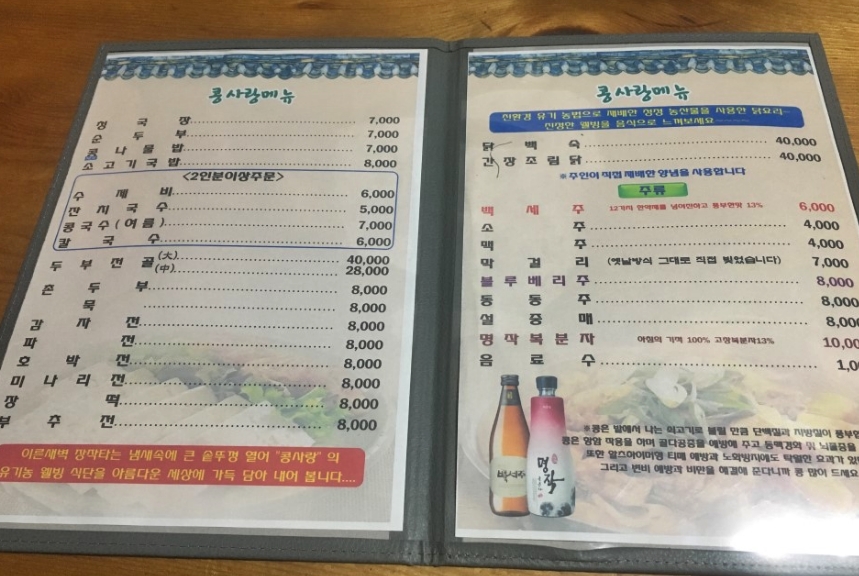 콩사랑메뉴
청국장 7,000
순두부 7,000
콩나물밥 7,000
소고기국밥 8,000
<2인분이상주문>
수제비 6,000
잔치국수 5,000
콩국수(여름) 7,000
칼국수 6,000
두부전골 (大) 40,000
(中) 28,000
촌두부 8,000
묵 8,000
감자전 8,000
파전 8,000
호박전 8,000
미나리전 8,000
장떡 8,000
부추전 8,000
이른새벽 장작타는 냄새속에 큰 솥뚜껑 열어 "콩사랑"의
유기농 웰빙 식단을 아름다운 세상에 가득 담아 내어 봅니다....
콩사랑메뉴
친환경 유기 농법으로 재배한 청정 농산물을 사용한 닭요리~
진정한 웰빙을 음식으로 느껴보세요
닭백숙 40,000
간장조림닭 40,000
※주인이 직접 재배한 양념을 사용합니다
주류
백세주 12가지 한약재를 넣어진하고 풍부한맛 13% 6,000
소주 4,000
맥주 4,000
막걸리 (옛날방식 그대로 직접 빚었습니다) 7,000
블루베리주 8,000
동동주 8,000
설중매 8,000
명작복분자 100% 고창복분자13% 10,00
음료수 1,0
※콩은 밭에서 나는 쇠고기로 불릴 만큼 단백질과 지방질이 풍부한
콩은 항암 작용을 하며 골다공증을 예방해 주고 동맥경화 뇌졸중을
또한 알츠하이머형 치매 예방과 노화방지에도 탁월한 효과가 있
그리고 변비 예방과 비만을 해결해 준다니까 콩 많이 드세요
백세주
명작